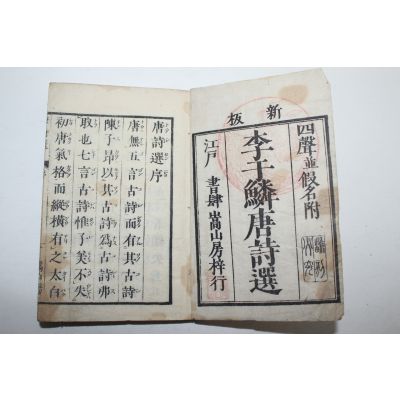 新板
四聲並假名附
李于鱗唐詩選
江戶 書肆嵩山房梓行
唐詩選序
唐無五言古詩而有其古詩
陳子昂以其古詩爲古詩弗
取也七言古詩惟子美不失
初唐氣格而縱橫有之太白